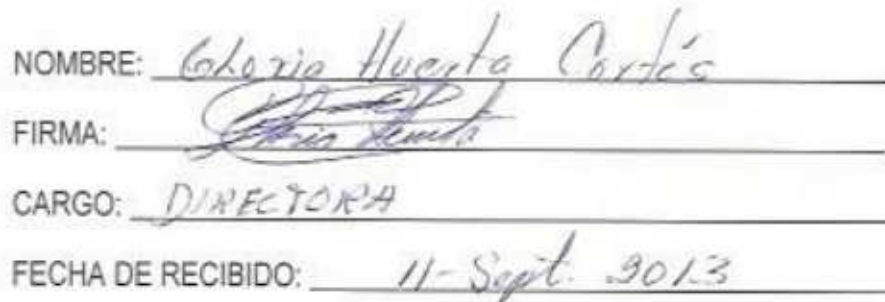 NOMBRE: Gloria Huerta Cortés
FIRMA: Gloria Huerta
CARGO: DIRECTORA
FECHA DE RECIBIDO: 11-Sept. 2013